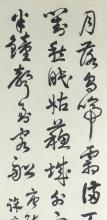 月落烏啼霜滿
對愁眠姑蘇城外
半鐘聲到客船